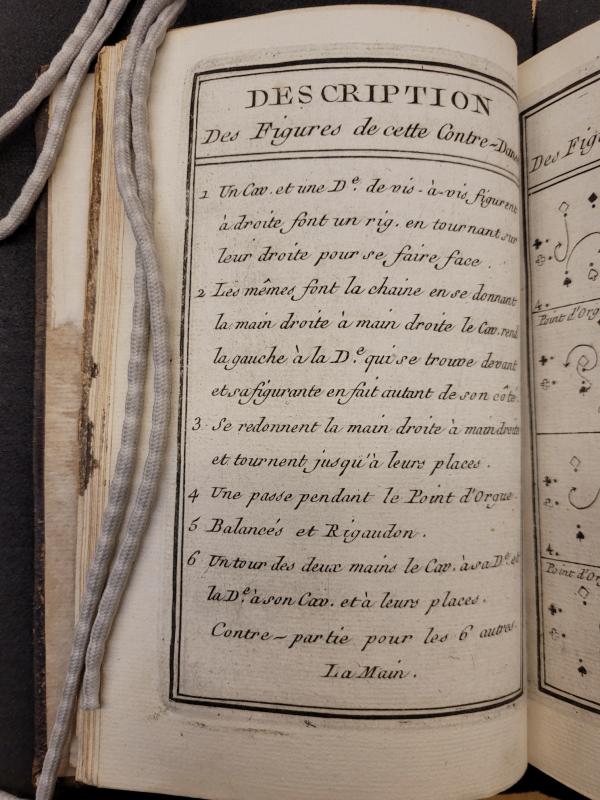 DESCRIPTION
Des Figures de cette Contre-Danse
1 Un Cav. et une D.e de vis-à-vis figurent
à droite font un rig. en tournant sur
leur droite pour se faire face.
2 Les mêmes font la chaine en se donnant
la main droite à main droite le Cav. rend
la gauche à la D.e qui se trouve devant
et sa figurante en fait autant de son côté.
3 Se redonnent la main droite à main droite
et tournent jusqu'à leurs places.
4 Une passe pendant le Point d'Orgue.
5 Balancés et Rigaudon.
6 Un tour des deux mains le Cav. à sa D.e et
la D.e à son Cav. et à leurs places.
Contre-partie pour les 6 autres.
La Main.
Des Fig
4.
Point d'Org
4.
Point d'Or